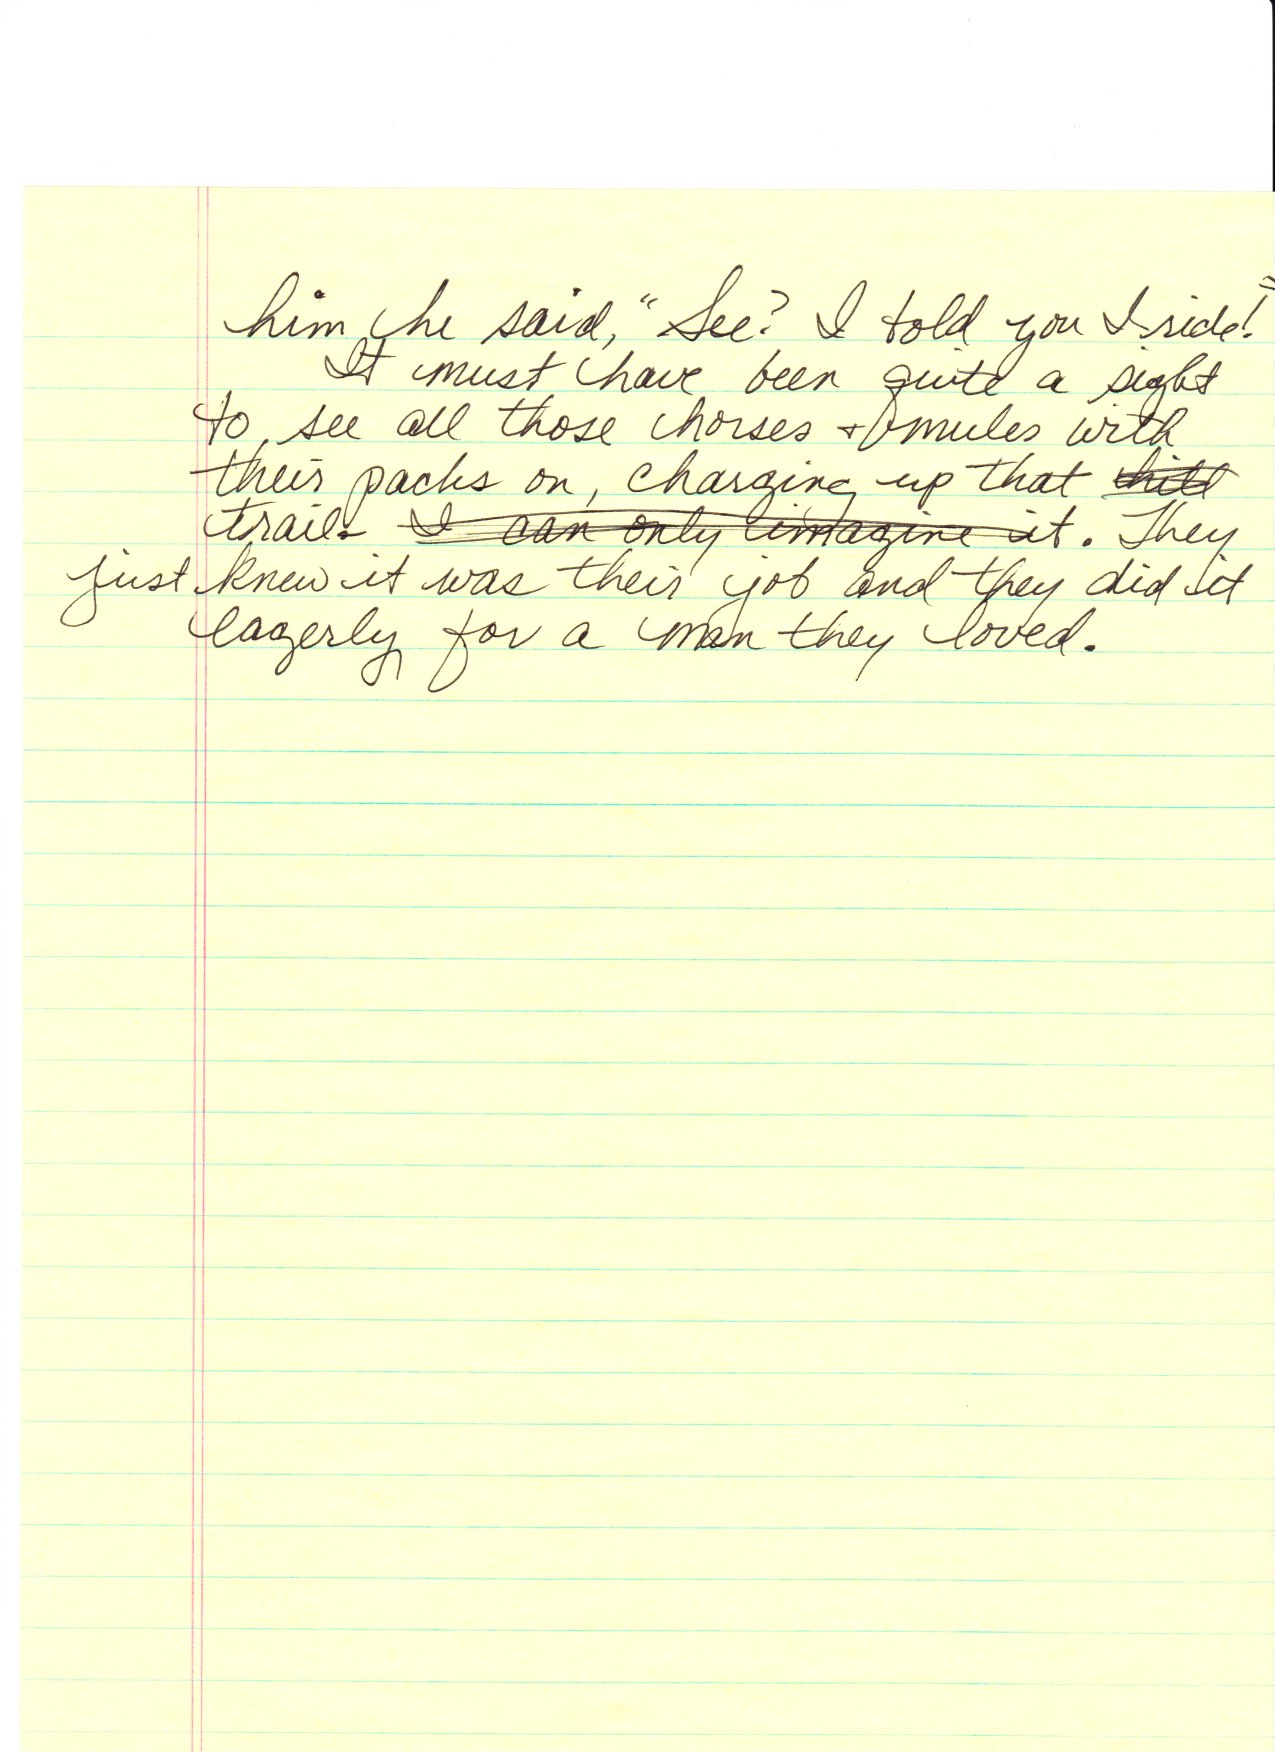 him, he said, "See? I told you I ride!"
It must have been quite a sight
to see all those horses + mules with
their packs on, charging up that hill
trail. I can only imagine it. They
just knew it was their job and they did it
eagerly for a man they loved.